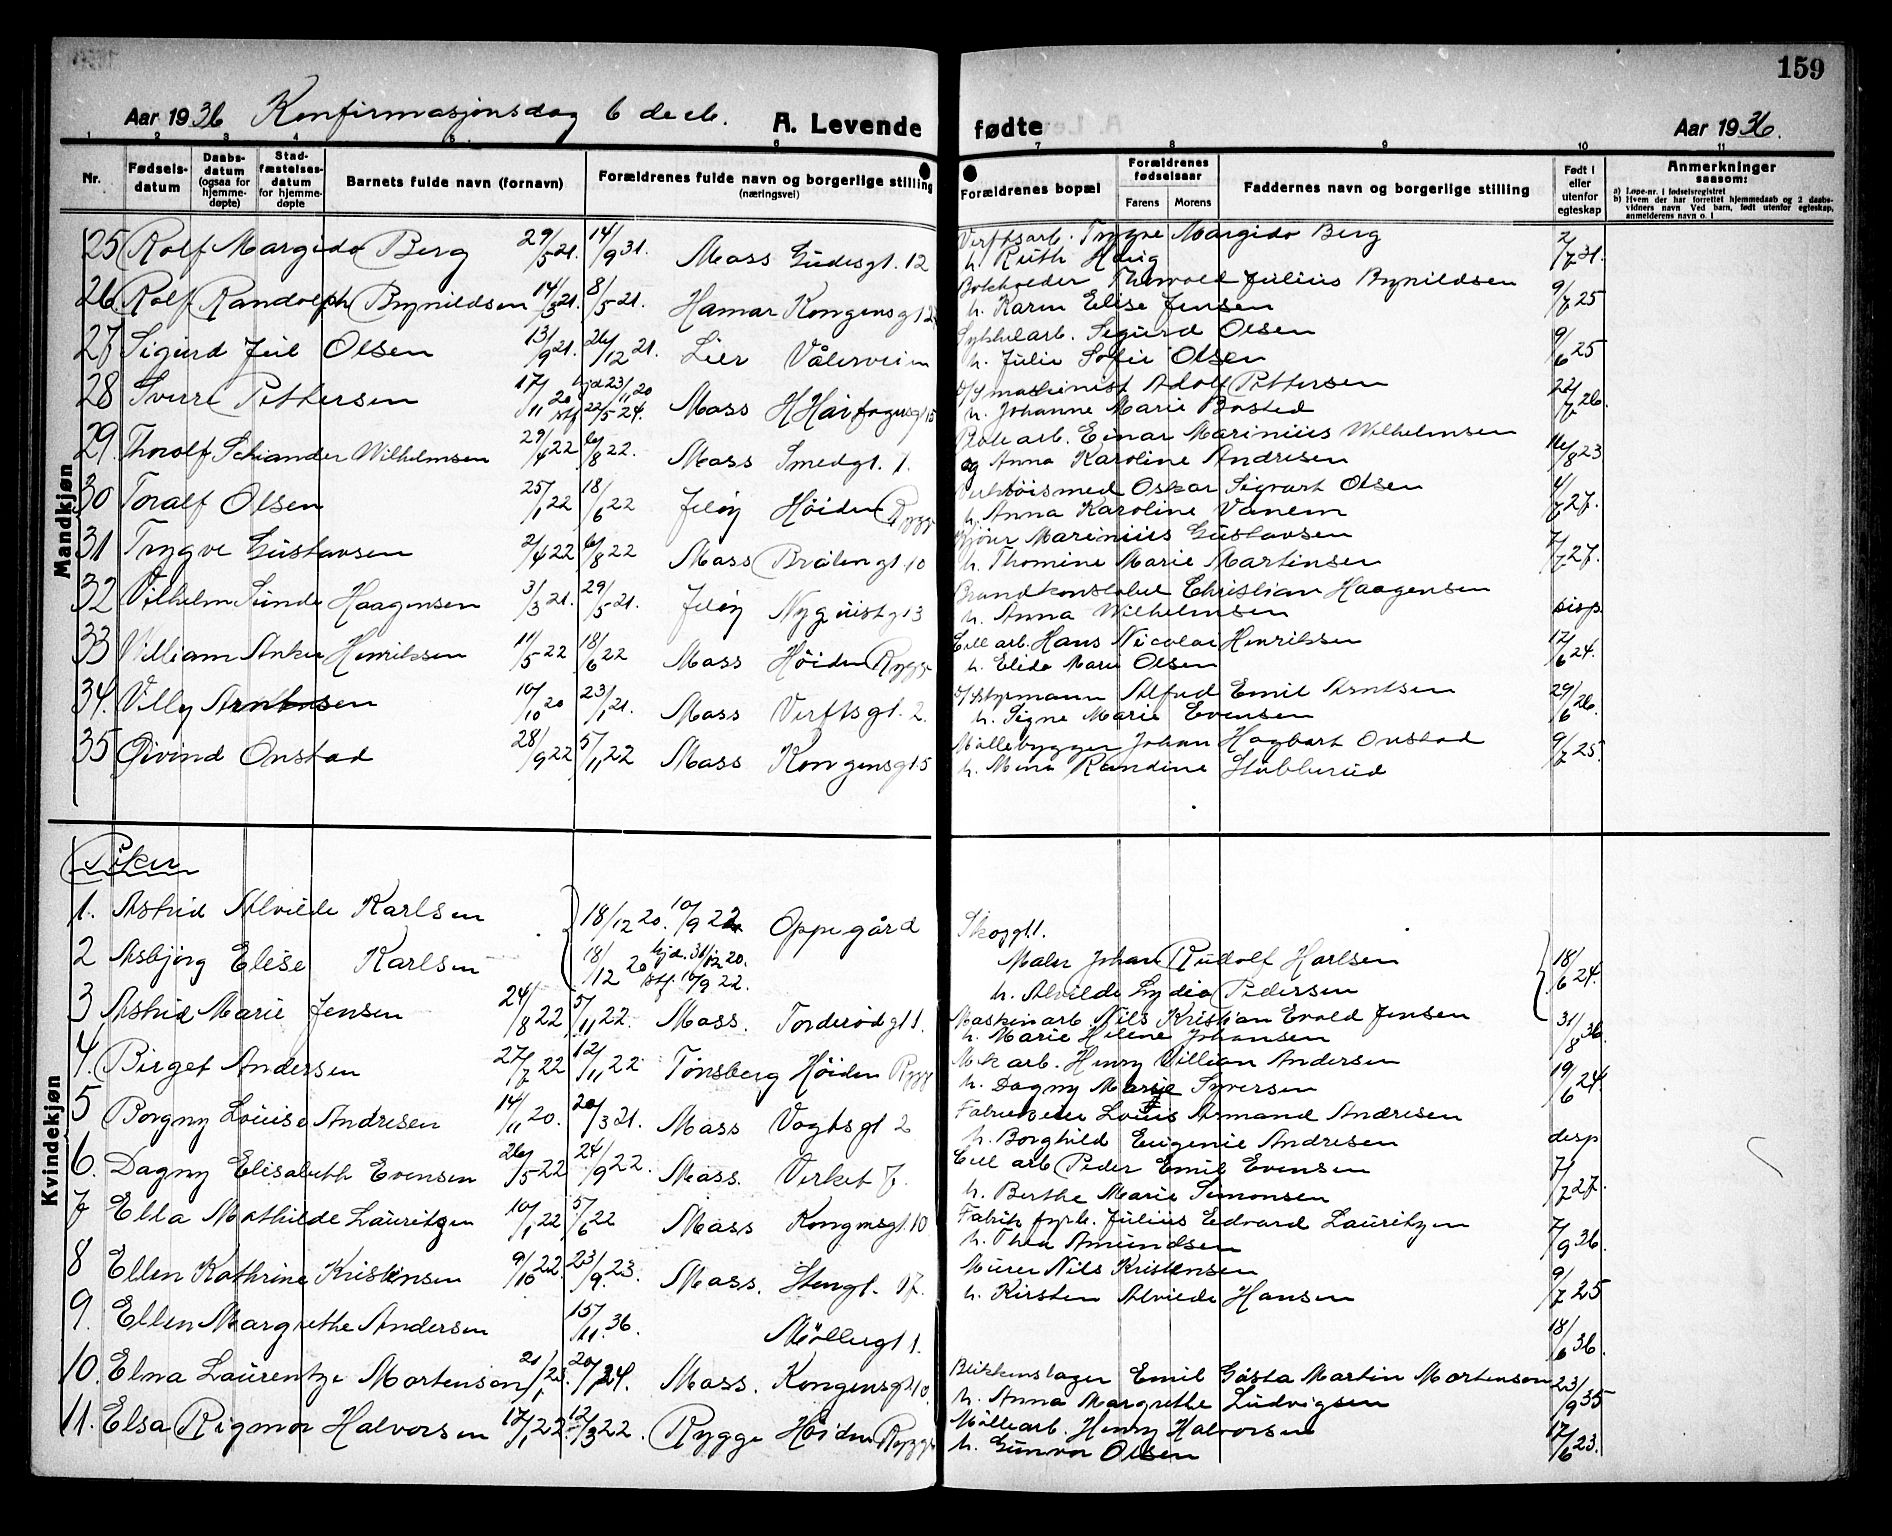 159
Aar 1936 Konfirmasjonsdag 6 decb. A. Levende fødte Aar 1936.
1 2 3 4 5 6 7 8 9 10 11
Nr. Fødsels-datum Daabs-datum (ogsaa for hjemme-døpte) Stad-fæstelses-datum for hjemme-døpte Barnets fulde navn (fornavn) Forældrenes fulde navn og borgerlige stilling (næringsvei) Forældrenes bopæl Forældrenes fødselsaar Farens Morens Faddernes navn og borgerlige stilling Født i eller utenfor egteskap Anmerkninger saasom:
a) Løpe-nr. i fødselsregistret
b) Hvem der har forrettet hjemmedaab og 2 daabsvidners navn Ved barn, født utenfor egteskap, anmelderens navn o. l
Mandkjøn
25 Rolf Margido Berg 29/5 21. 14/9 31. Moss Gudesgt. 12 Verftsarb. Trygve Margido Berg 2/7 31.
h. Ruth Haug
26 Rolf Randolph Brynildsen 14/3 21. 8/5 21. Hamar Kongensgt Bokholder Thorvald Julius Brynildsen 9/7 25
h. Karen Elise Jensen
27 Sigurd Juel Olsen 13/9 21. 26/12 21. Lier Vålerveien Sykkelarb. Sigurd Olsen 9/6 25
h. Julie Sofie Olsen
28 Sverre Pettersen 17/11 20 hjd 23/11 20 stf 22/5 24. Moss H Hårfagersgt 15 maskinist Adolf Pettersen 22/7 26.
h. Johanne Marie Bosted
29. Thorolf Schander Wilhelmsen 29/4 22 6/8 22. Moss Smedgt. 1. arb. Einar Marinius Wilhelmsen 16/8 23
og Anna Karoline Andresen
30 Toralf Olsen 25/1 22 18/6 22 Jeløy Høiden Rygge Verktøismed Oskar Sigvart Olsen 4/7 27.
h. Anna Karoline Vanem
31 Trygve Gustavsen 2/4 22 6/8 22 Moss Bråtengt. 10 Kjører Marinius Gustavsen 7/7 27.
h. Thomine Marie Martinsen
32 Vilhelm Sunde Haagensen 3/3 21. 29/5 21. Jeløy Nyquistgt 3 Brandkonstabel Christian Haagensen disp.
h. Anna Wilhelmsen
33 William Anker Henriksen 11/5 22 18/6 22 Moss Høiden Rygge Cell arb. Hans Nicolai Henriksen 12/6 24.
h. Elida Marie Olsen
34. Villy Arntsen 10/10 20 23/1 21. Moss Verftsgt. 2. Styrmann Alfred Emil Arntsen 29/6 26.
h. Signe Marie Evensen
35 Øivind Onstad 28/9 22 5/11 22 Moss Kongensgt 5 Møllebygger Johan Hagbart Onstad 9/7 25.
h. Mina Randine Stubberud
Piker
Kvindekjøn
1. Astrid Alvilde Karlsen 18/12 20. 10/9 22 Oppegård Skoggt 1.
2 Asbjørg Elise Karlsen 18/12 20 hjd. 31/12 20. stf. 10/9 22. Maler Johan Rudolf Karlsen 18/6 24.
h. Alvilde Lydia Pedersen
3 Astrid Marie Jensen 24/8 22 5/11 22. Moss. Torderødgt 1. Maskinarb. Nils Kristian Evald Jensen 31/8 36.
h. Marie Helene Johansen
4. Birget Andersen 27/7 22 12/11 22 Tønsberg Høiden Rygge Mek arb. Henry Villian Andersen 19/6 24.
h. Dagny Marie Syversen
5 Borgny Louise Andresen 14/11 20. 20/3 21. Moss Vogtsgt 2 Louis Armand Andresen disp
h. Borghild Eugenie Andresen
6. Dagny Elisabeth Evensen 26/5 22 24/9 22. Moss. Verket 7. Cell arb Peder Emil Evensen 7/7 27.
h. Berthe Marie Simonsen
7 Ella Mathilde Lauritzen 10/1 22 5/6 22 Moss Kongensgt. 10 Fabrik fyrb. Julius Edvard Lauritzen 7/9 36.
h. Thea Amundsen
8 Ellen Kathrine Kristensen 9/10 22. 23/9 23. Moss. Stengt. 17. Murer Nils Kristensen 9/7 25
h. Kirsten Alvilde Hansen
9. Ellen Margrethe Andersen 15/11. 36. Møllergt 1. 18/6 36.
10. Elna Laurentze Mortenson Moss. Kongensgt 10. Blikkenslager Emil Gøsta Martin Mortenson 23/9 35
h. Anna Margrethe Ludvigsen
11. Elsa Rigmor Halvorsen 17/1 22. 12/3 22. Rygge Høiden Rygge Møllearb. Henry Halvorsen 17/6 23.
h. Gunvor Olsen